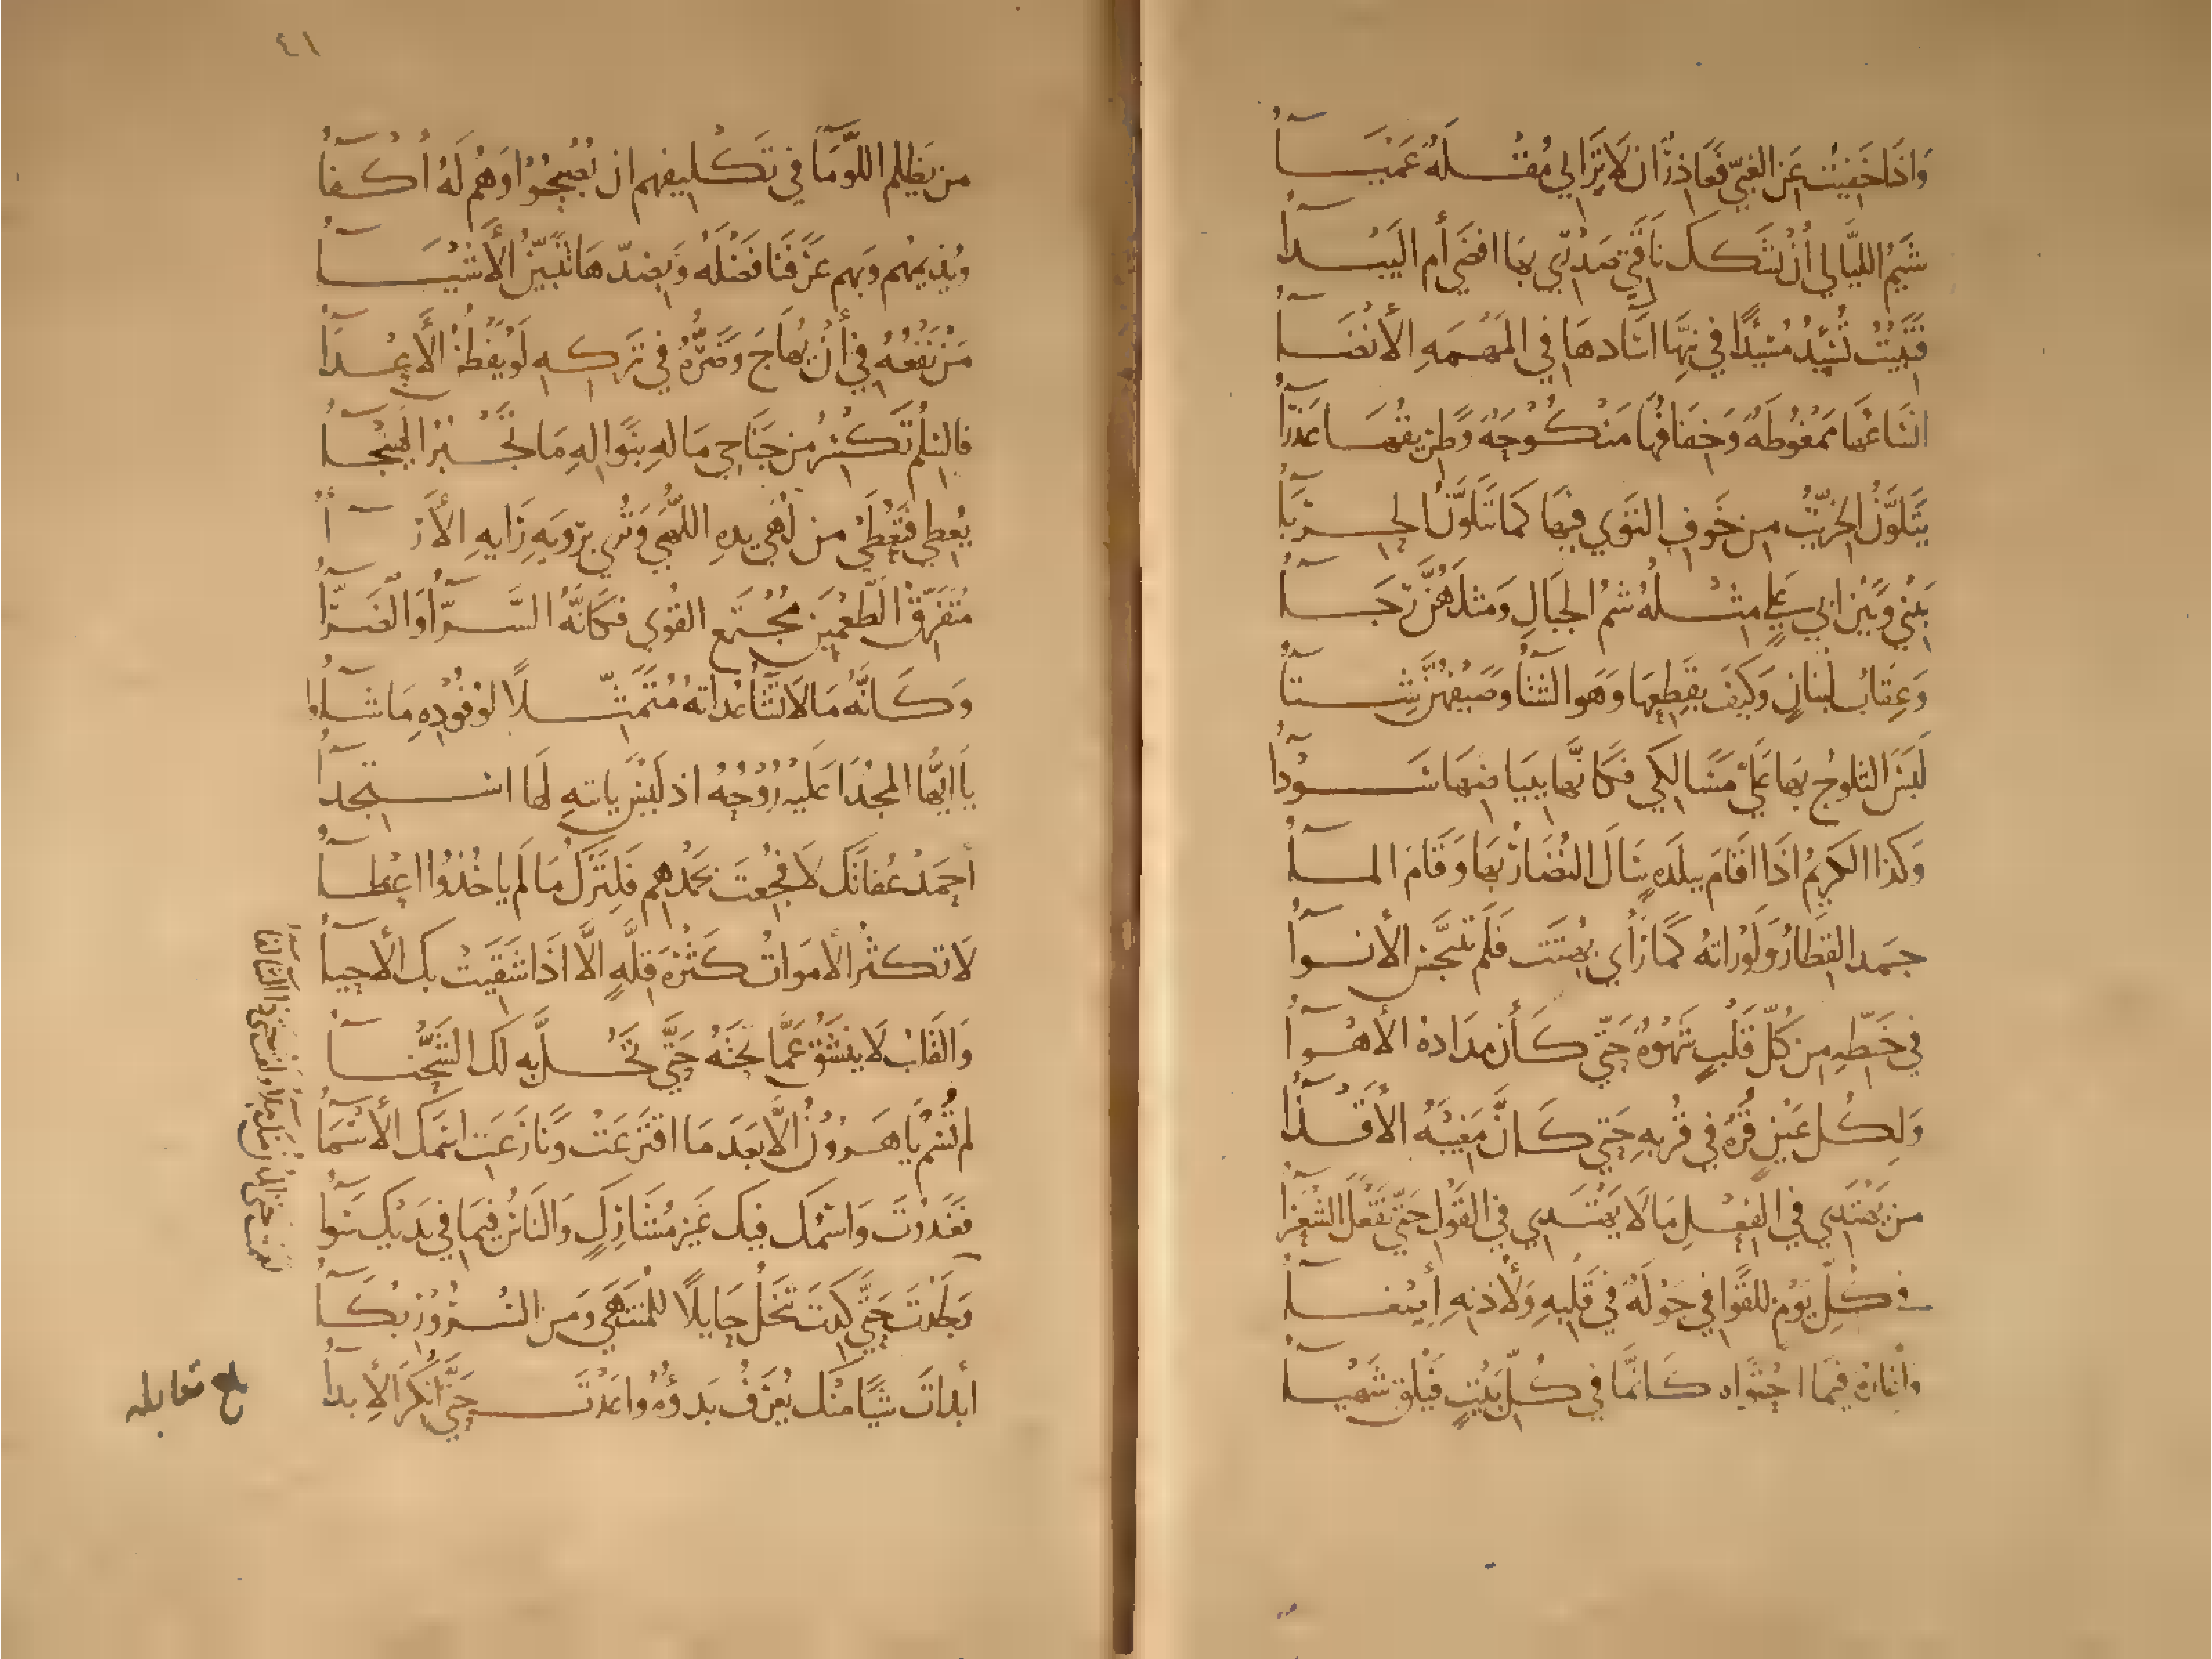 وَاِذَا خَفِيتُ عَنِ الغَبِيِّ فَعَاذِرٌ ان لَا تَرَانِي مُقْلَةٌ عَمْيَآءُ
شِيَمُ اللَّيَالِي أَنْ تُشَكِّكَ نَاقَتِي صَدْرِي بِهَا افضَى أم البَيْدآءُ
فَتَبِيتُ تُسْئِدُ مُسْئِدًا في نِيِّهَا اسْآدهَا في المَهْمَهِ الأَنْضَآءُ
انْسَاعُهَا مَمْغُوطَةٌ وَخِفَافُهَا مَنْكُوحَةٌ وَطَرِيقُهَا عَذْرَآءُ
يَتَلَوَّنُ الخِرِّيتُ مِن خَوفِ التَوَى فِيهَا كَمَا تَتَلَوَّنُ الحِرْبَآءُ
بَيْنِي وَبَيْنَ ابي عَلِيٍّ مِثْلُهُ شُمُّ الجِبَالِ وَمِثْلَهُنَّ رَجَآءُ
وَعِقَابُ لُبنانٍ وَكَيْفَ بِقَطِعِهَا وَهوَ الشتآءُ وَصَيْفُهُنَّ شِتآءُ
لَبَسَ الثلوجُ بِهَا عَلَيَّ مَسَالِكِي فَكَانَّهَا بِبَيَاضِهَا سَوْدآءُ
وَكَذَا الكَرِيمُ اذَا اقَامَ بِبَلدَةٍ سَالَ النُضَارُ بِهَا وَقَامَ المآءُ
جَمَد القِطَارُ وَلَوْ رَاتهُ كَمَا رَأَى بُهِتَت فَلَم تَتَبَجَّسِ الأنوآءُ
فِي خَطِّهِ مِن كُلِّ قَلْبٍ شَهْوَةٌ حَتَّى كَأَن مِدَادهُ الأهْوآءُ
وَلِكُل عَيْنٍ قُرَّةٌ في قُربِهِ حَتَّى كَانَّ مَغِيبَهُ الأَقْذآءُ
من يَهْتَدِي في الفِعْلِ مَا لَا يَهْتَدِي في القَوْلِ حَتَّى يَفْعَلَ الشُعَرآءُ
في كُلِّ يَوْمٍ للقَوَافي جَوْلَةٌ في قَلْبِهِ وَلأُذنِهِ أِصْغآءُ
وَاِغَارَةٌ فِيمَا احْتَوَاه كَانَّمَا في كُلِّ بَيْتٍ فَيْلَقٌ شَهْبآءُ
٤١
مَن يَظلِم اللُّؤمَآءَ في تَكْلِيفهم ان يُصْبِحُوْا وَهُمُ لَهُ أَكْفآءُ
وَنُذِيمُهم وَبِهِم عَرَفْنَا فَضْلَهُ وَبِضِدِّهَا تَتَبَيَّنُ الأَشْيَآءُ
مَنْ نَفْعُهُ في أَنْ يُهَاجَ وَضَرُّهُ في تَركِهِ لَوْ يَفْطُنُ الأَعْدَآءُ
فالسِلمُ تَكْسِرُ من جَنَاحِي مَالهِ بِنَوالهِ مَا تَجْبُرُ الهَيْجآءُ
يُعطِي فَتُعْطَى من لُهَى يدهِ اللُّهَى وَتُرَى بِرُؤيَةِ رَايِهِ الأَرآءُ
مُتَفَرِّقُ الطَّعْمَيْنِ مُجْتَمِعُ القُوَى فَكَانَّهُ السَّرآءُ وَالضَرَّآءُ
وَكَانَّهُ مَا لَا تَشَآءُ عُداتهُ مُتَمَثِّلًا لوُفُوْدِهِ مَا شَآؤا
يَا ايُّهَا المجْدَا عَلَيْهِ رُوْحُهُ اذ لَيْسَ يَاتِيهِ لَهَا اسْتِجْدآءُ
أحمَدْ عُفَاتَكَ لَا فُجِعْتَ بِحَمْدِهِم فَلَتَرْكُ مَا لَم ياخُذُوْا اعْطآءُ
لَا تكثُر الأموَاتُ كَثْرَة قِلَّةٍ الَّا اذَا شَقِيَتْ بك الأَحيَآءُ
وَالقَلبُ لَا يَنْشَقُّ عَمَّا تَحْتَهُ حَتَّى تَحُلَّ بِهِ لَكَ الشَحْنآءُ
لم تُسْمَ يَا هَرُوْنُ الَّا بَعْدَ مَا اقْتَرَعَتْ وَنَازَعَتِ اسْمَكَ الأَسْمَآءُ
فَغَدَوْتَ وَاسْمُكَ فِيكَ غَيْرُ مُشَارِكٍ وَالنَاسُ فِيمَا في يَدَيْكَ سَوَآءُ
لَعَمَمْتَ حَتَّى المُدْنُ مِنكَ مِلآءُ وَلَفُتَّ حَتَّى ذَا الثَنآءُ لَفآءُ
وَلَجُدْتَ حَتَّى كِدْتَ تَبْخَلُ حَايِلًا للمُنْتَهَى وَمِنَ السُّرُوْرِ بُكَآءُ
أَبدَاتَ شيًا مِنْكَ يُعْرَفُ بَدؤُهُ وَاعَدْتَ حَتَّى انْكِرَ الأِبدآءُ
بلغ مقابله